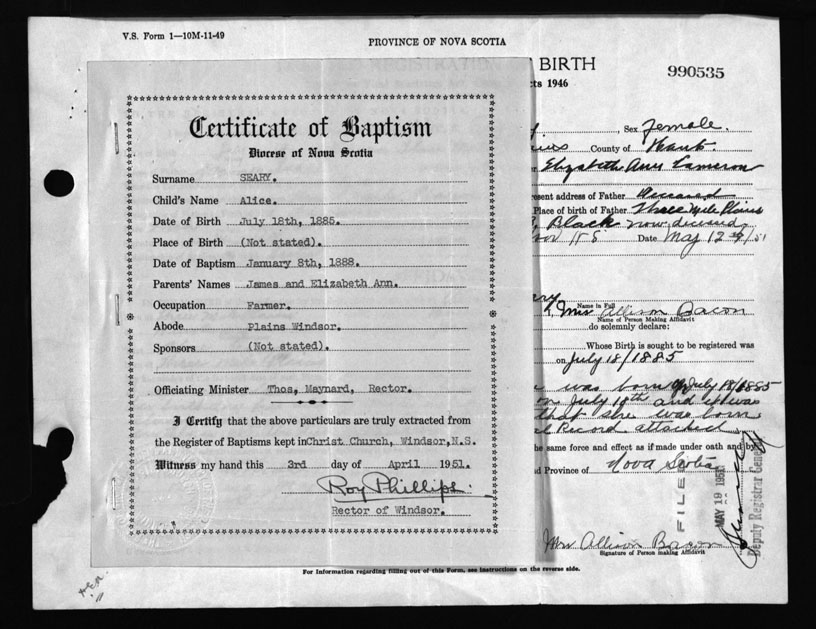 V.S. Form 1—10M-11-49
PROVINCE OF NOVA SCOTIA
BIRTH
990535
cts 1946
Certificate of Baptism
Diocese of Nova Scotia
Surname SEARY.
Child's Name Alice.
Date of Birth July 18th, 1885.
Place of Birth (Not stated).
Date of Baptism January 8th, 1888.
Parents' Names James and Elizabeth Ann.
Occupation Farmer.
Abode Plains Windsor.
Sponsors (Not stated).
Officiating Minister Thos, Maynard, Rector.
I Certify that the above particulars are truly extracted from
the Register of Baptisms kept in Christ Church, Windsor, N.S.
Witness my hand this 3rd day of April 1951.
Roy Phillips.
Rector of Windsor.
, Sex female.
County of Hants
Elizabeth Ann Cameron
resent address of Father Deceased
Place of birth of Father Three Mile Plains
Black now deceased
Date May 12th/51
Name in Full
Mrs Allison Bacon
Name of Person Making Affidavit
do solemnly declare:
Whose Birth is sought to be registered was
on July 18/1885
was born July 18/1885
on July 18th and it was
that she was born
Record attached
he same force and effect as if made under oath and by
d Province of Nova Scotia
FILED
MAY 19 1951
Deputy Registrar General
Mrs Allison Bacon
Signature of Person making Affidavit
For Information regarding filling out of this Form, see instructions on the reverse side.